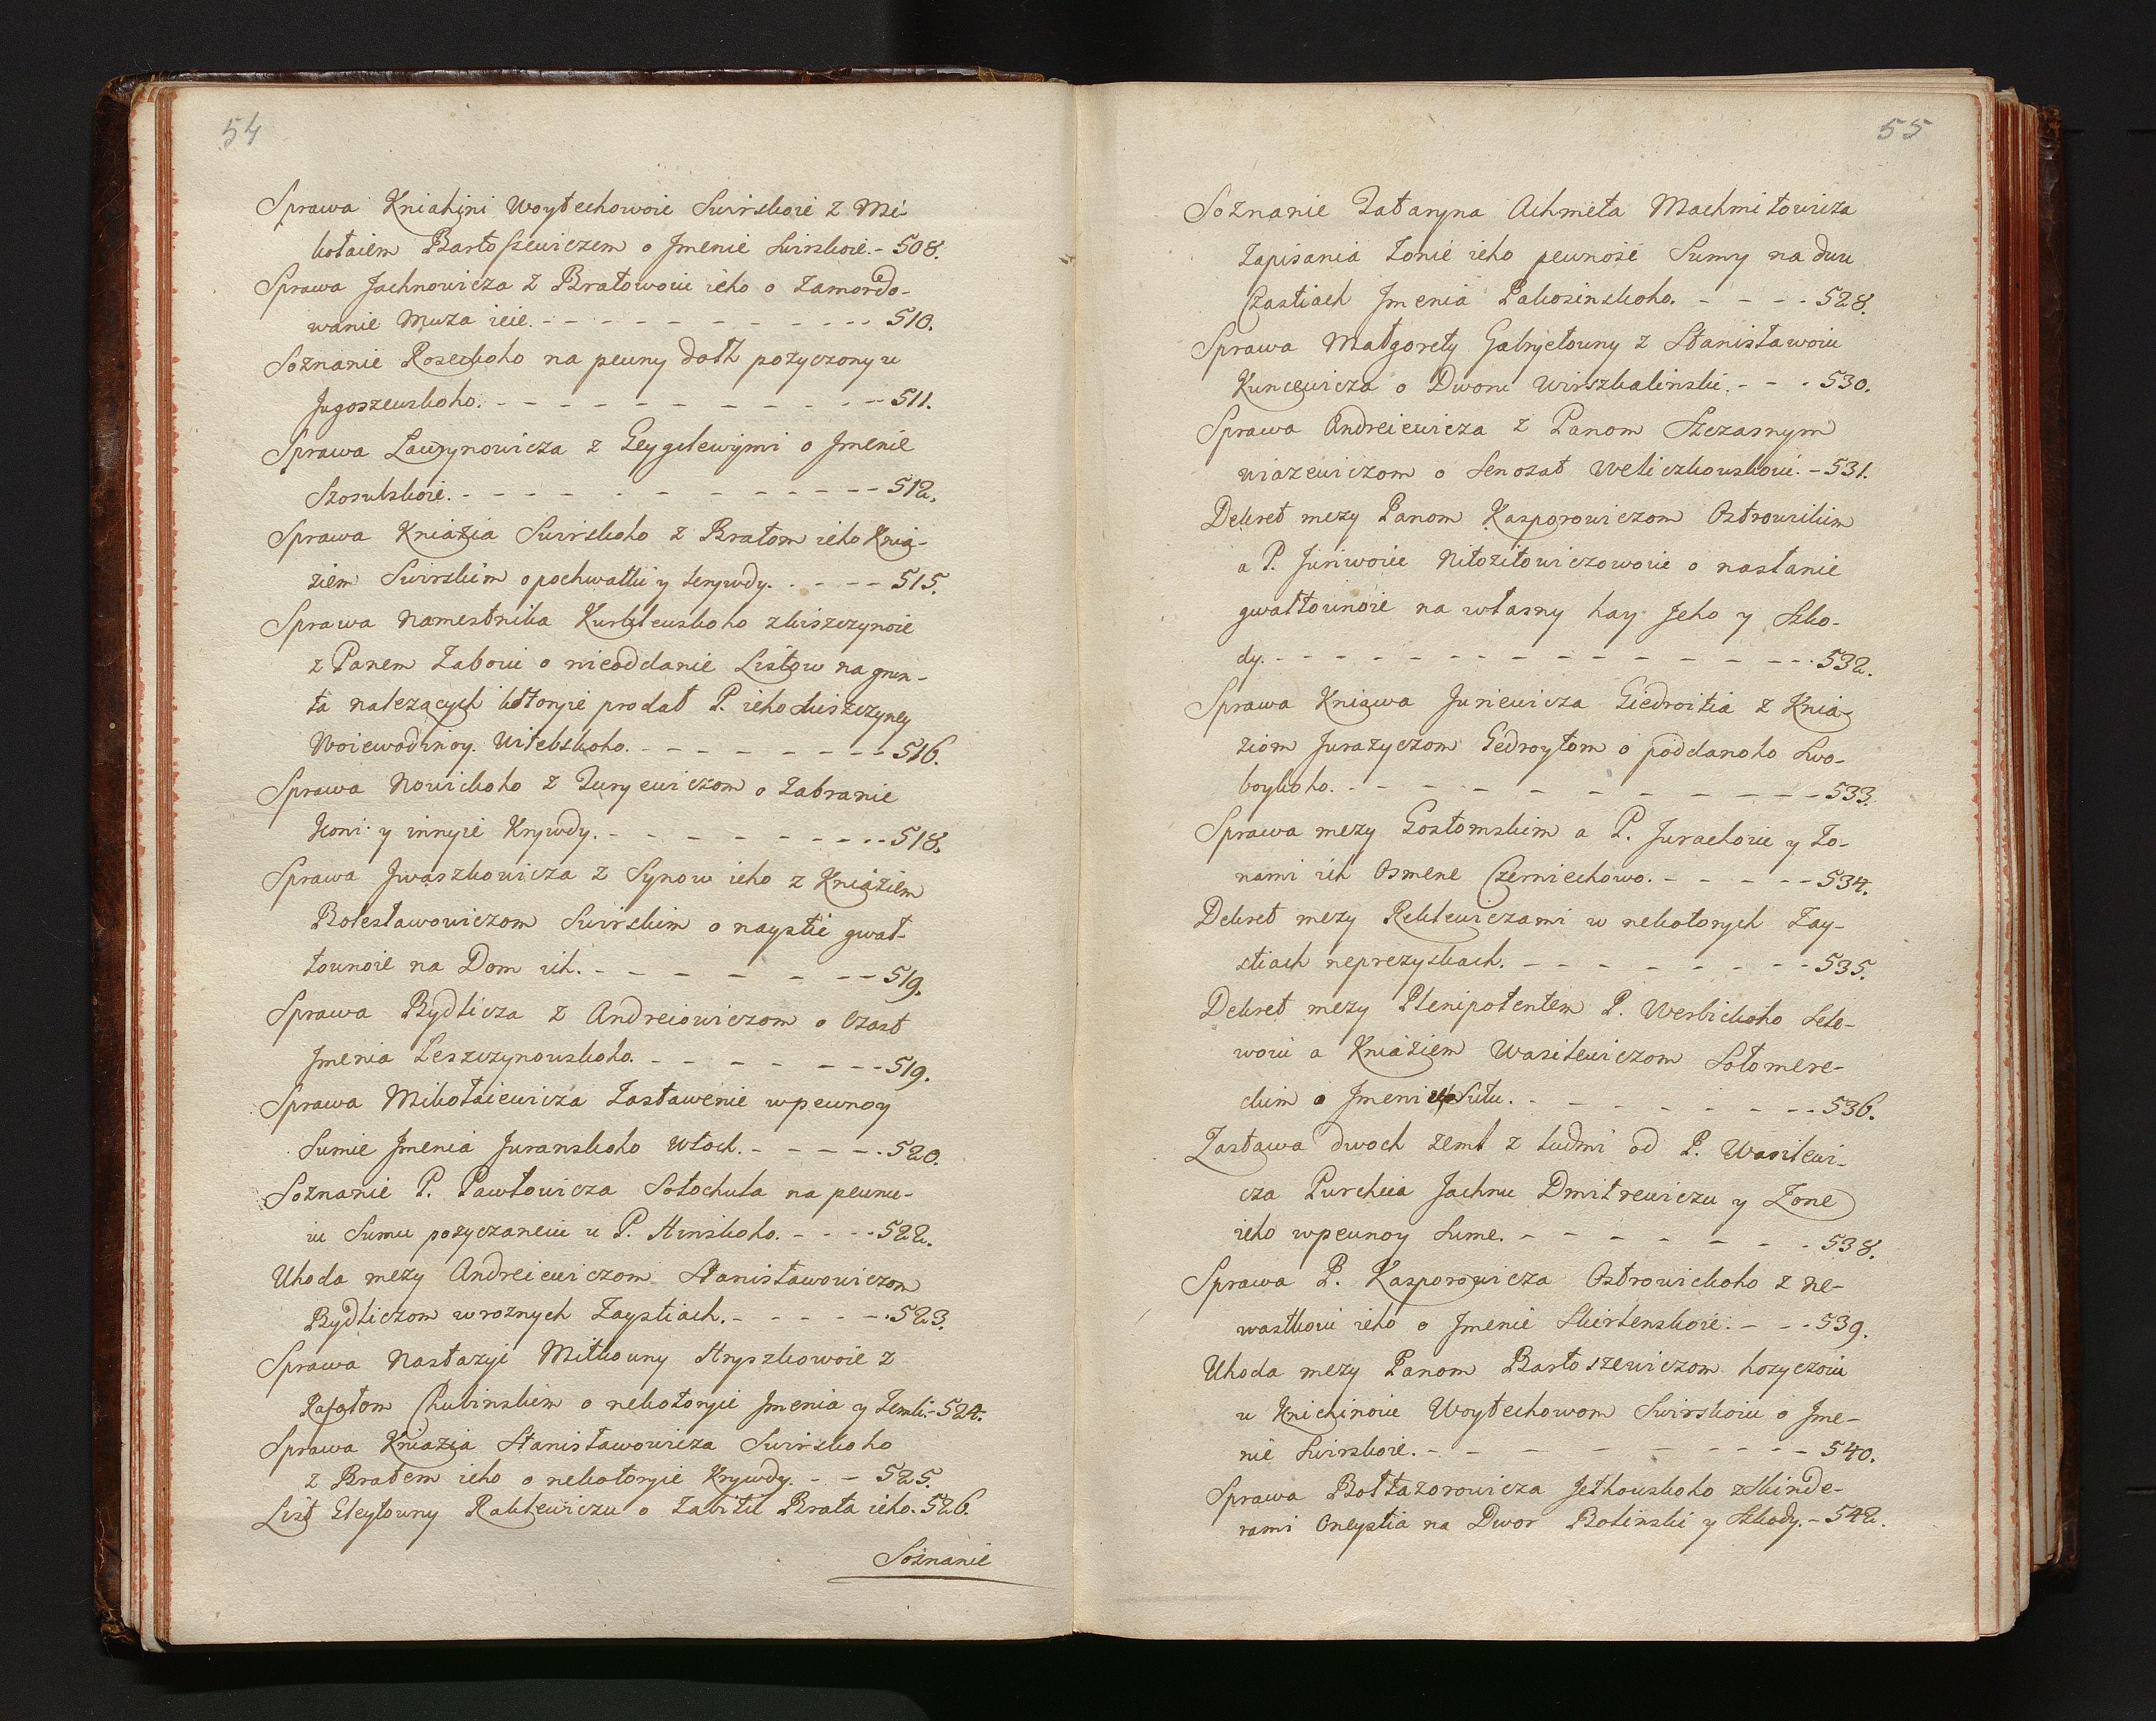 54
Sprawa Kniahini Woytechowoie Swirskoie z Mi-
kołaiem Bartoszewiczem o Jmenie Swirskoie. - 508.
Sprawa Jachnowicza z Bratowoiu ieho o Zamordo-
wanie Muża ieie. - - - - - - - - - - - - 510.
Soznanie Roseckoho na pewny dołh pożyczony u
Jugoszewskoho. - - - - - - - - - - - - 511.
Sprawa Ławrynowicza z Geygałewymi o Jmenie
Szosulskoie. - - - - - - - - - - - - 512.
Sprawa Kniazia Swirskoho z Bratom ieho Knia-
ziem Swirskim o pochwałki y krywdy. - - - - 515.
Sprawa Namestnika Kurklewskoho z kiszczynoie
z Panem Zaboiu o nieoddanie Listow na grun-
ta należących kotoryie prodał P. ieho kiszczyney
Woiewodinoy. Witebskoho. - - - - - - - - 516.
Sprawa Nowickoho z Juryewiczom o Zabranie
Koni y innyie Krywdy. - - - - - - - - 518.
Sprawa Jwaszkowicza z Synow ieho z Kniaziem
Bolesławowiczom Swirskim o nayście gwał-
townoie na Dom ich. - - - - - - - - 519.
Sprawa Bydlicza z Andreiowiczom o Czast
Jmenia Leszczynowskoho. - - - - - - - 519.
Sprawa Mikołaiewicza Zastawenie w pewnoy
Sumie Jmenia Juranskoho Włoch. - - - - - 520.
Soznanie P. Pawłowicza Sołochuła na pewnu-
iu Sumu pożyczaneiu u P. Ainskoho. - - - - 522.
Uhoda mezy Andreiewiczom Stanisławowiczom
Bydliczom w roznych Zaystiach. - - - - - - 523.
Sprawa Nastazyi Mitkowny Hryszkowoie z
Rafałom Chubinskim o nekotoryie Jmenia y Zemli. - 524.
Sprawa Kniazia Stanisławowicza Swirskoho
z Bratem ieho o nekotoryie Krywdy. - - 525.
List Gleytowny Raklewiczu o Zabitie Brata ieho. 526.
Soznanie
55
Soznanie Tataryna Achmeta Machmitowicza
Zapisania Zonie ieho pewnoie Sumy na dwu
Czastiach Jmenia Pakosinskoho. - - - - 528.
Sprawa Małgorety Gabryełowny z Stanisławoiu
Kuncewicza o Dwore Wirszkalinskie. - - - 530.
Sprawa Andreiewicza z Panom Szczasnym
Wiazewiczom o Senożat Weliczkowskoiu. - 531.
Dekret mezy Panom Kasporowiczom Ostrowickim
a P. Juriwoiu Nitozitowiczowoie o nasłanie
gwałtownoie na własny hay Jeho y Szko-
dy. - - - - - - - - - - - - - - 532.
Sprawa Kniawa Juriewicza Giedroitia z Knia-
ziom Jurażyczom Gedroytom o poddanoho Swo-
boyskoho. - - - - - - - - - - - 533.
Sprawa mezy Gostomskim a P. Jurachoiu y Zo-
nami ich Osmene Czerniechowo. - - - - - 534.
Dekret mezy Reklewiczami w nekotorych Zay-
stiach neprezyskach. - - - - - - - - 535.
Dekret mezy Plenipotentem P. Werbickoho Sele-
woiu a Kniaziem Wasilewiczom Sołomere-
ckim o Jmenie Sutu. - - - - - - - - 536.
Zastawa dwoch zeml z ludmi od P. Wasilewi-
cza Purchwia Jachnu Dmitrewiczu y Zone
ieho w pewnoy Sume. - - - - - - - - 538.
Sprawa P. Kasporowicza Ostrowickoho z ne-
wastkoiu ieho o Jmenie Skirtenskoie. - - - 539.
Uhoda mezy Panom Bartoszewiczom hozyczoiu
u Knichinoiu Woytechowom Swirskoiu o Jme-
nie Swirskoie. - - - - - - - - - 540.
Sprawa Bołtazorowicza Jethowskoho z Skinde-
rami Oneystia na Dwor Bolinski y Szkody. - 542.